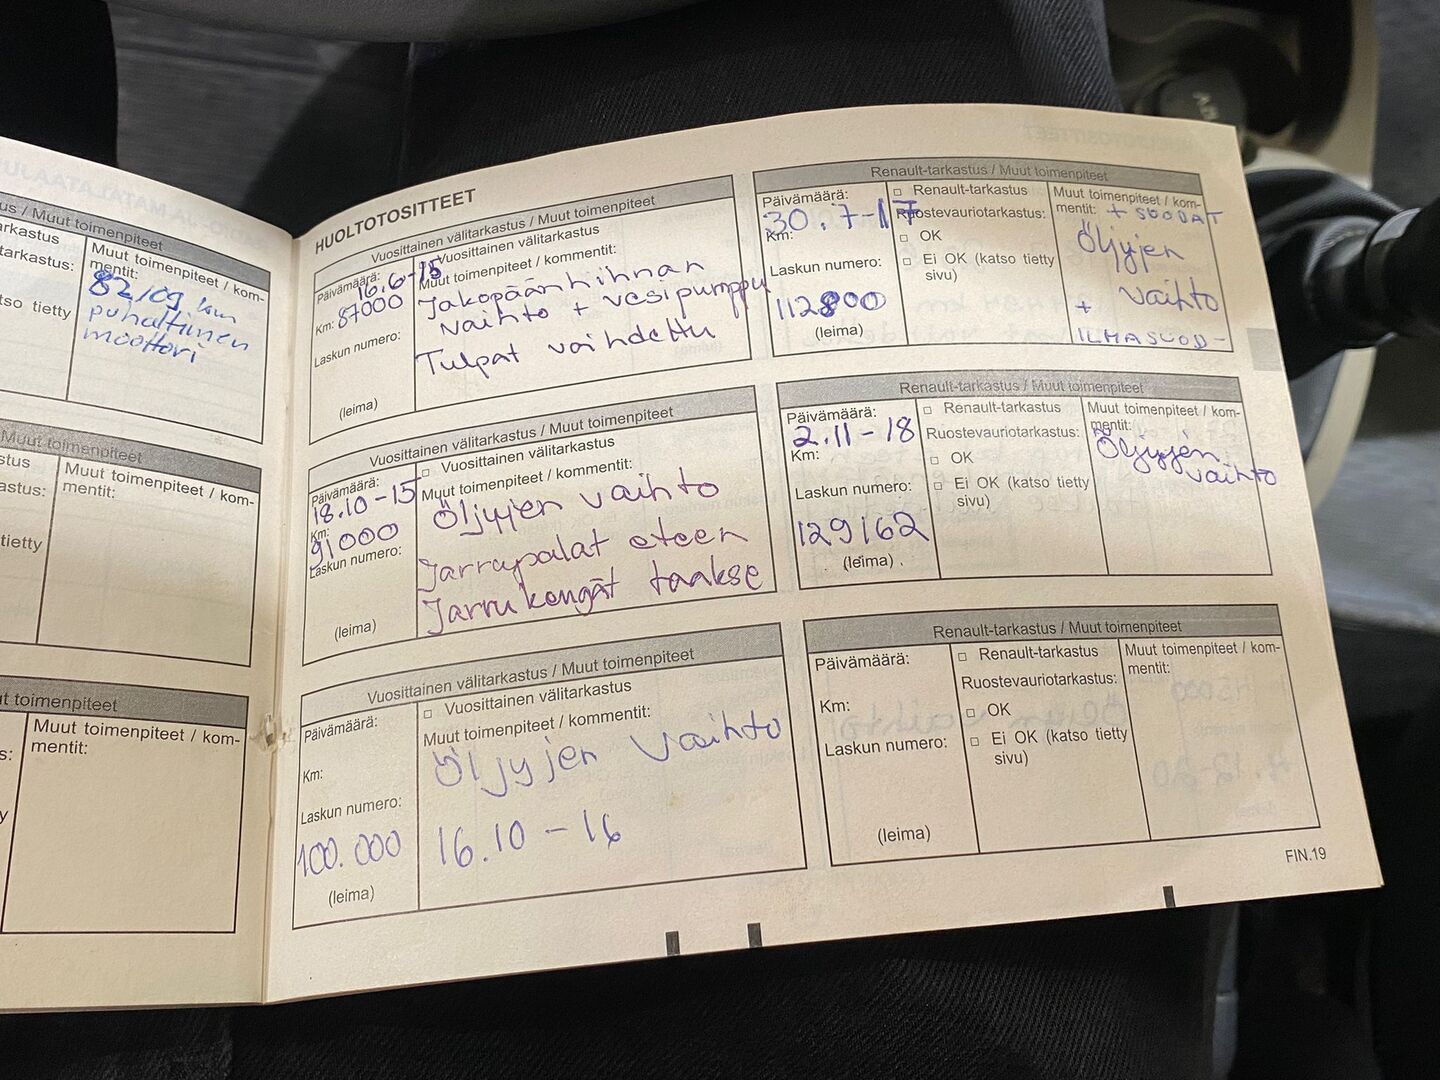 us / Muut toimenpiteet
arkastus
tarkastus:
tso tietty
Muut toimenpiteet / kom-
mentit:
82109 km
puhaltimen
moottori
Muut toimenpiteet
stus
astus:
tietty
Muut toimenpiteet / kom-
mentit:
ut toimenpiteet
s:
y
Muut toimenpiteet / kom-
mentit:
HUOLTOTOSITTEET
Vuosittainen välitarkastus / Muut toimenpiteet
Päivämäärä:
16.6-15
Km: 87000
Laskun numero:
(leima)
Vuosittainen välitarkastus
Muut toimenpiteet / kommentit:
Jakopäänhihnan
vaihto + vesipumppu
Tulpat vaihdettu
Vuosittainen välitarkastus / Muut toimenpiteet
Päivämäärä:
18.10-15
Km:
91000
Laskun numero:
(leima)
Vuosittainen välitarkastus
Muut toimenpiteet / kommentit:
Öljyjen vaihto
Jarrupalat eteen
Jarrukengät taakse
Vuosittainen välitarkastus / Muut toimenpiteet
Päivämäärä:
Km:
Laskun numero:
100.000
(leima)
Vuosittainen välitarkastus
Muut toimenpiteet / kommentit:
Öljyjen vaihto
16.10-16
Renault-tarkastus / Muut toimenpiteet
Päivämäärä:
30.7-17
Km:
Laskun numero:
112800
(leima)
Renault-tarkastus
Ruostevauriotarkastus:
OK
Ei OK (katso tietty
sivu)
Muut toimenpiteet / kom-
mentit: + SUODAT
Öljyjen
vaihto
+
ILMASUOD-
Renault-tarkastus / Muut toimenpiteet
Päivämäärä:
2.11-18
Km:
Laskun numero:
129162
(leima)
Renault-tarkastus
Ruostevauriotarkastus:
OK
Ei OK (katso tietty
sivu)
Muut toimenpiteet / kom-
mentit:
Öljyjen
vaihto
Renault-tarkastus / Muut toimenpiteet
Päivämäärä:
Km:
Laskun numero:
(leima)
Renault-tarkastus
Ruostevauriotarkastus:
OK
Ei OK (katso tietty
sivu)
Muut toimenpiteet / kom-
mentit:
FIN.19